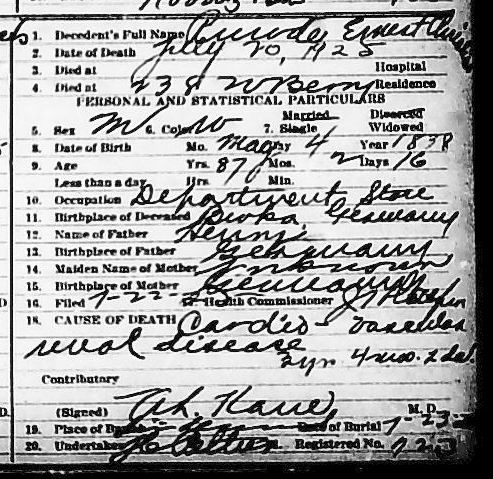 1. Decedent's Full Name Ernest
2. Date of Death July 20, 1925
3. Died at Hospital
4. Died at 238 W Berry Residence
PERSONAL AND STATISTICAL PARTICULARS
Married Divorced
5. Sex M 6. Color W 7. Single Widowed
8. Date of Birth Mo. May Day 4 Year 1838
9. Age Yrs. 87 Mos. 2 Days 16
Less than a day Hrs. Min.
10. Occupation Department Store
11. Birthplace of Deceased Germany
12. Name of Father Henry
13. Birthplace of Father Germany
14. Maiden Name of Mother Unknown
15. Birthplace of Mother Germany
16. Filed 7-22- Health Commissioner
18. CAUSE OF DEATH Cardio- vascular
renal disease
3 yrs 4 mos. 2 da.
Contributary
(Signed) Kane M. D.
19. Place of Burial Date of Burial 7-23-
20. Undertaker Registered No. 723